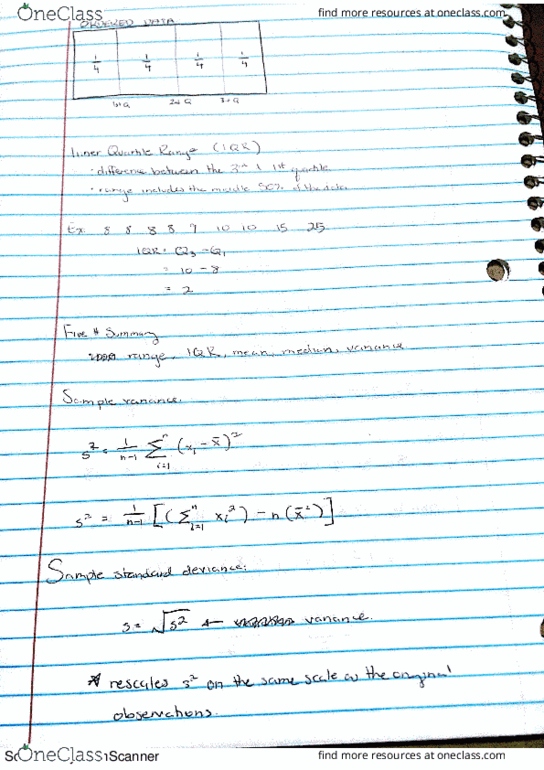 OneClass
find more resources at oneclass.com
ORDERED DATA
1/4 1/4 1/4 1/4
1st Q 2nd Q 3rd Q
Inner Quartile Range (IQR)
· difference between the 3rd & 1st quartile
· range includes the middle 50% of the data
Ex. 8 8 8 8 9 10 10 15 25
IQR = Q3 - Q1
= 10 - 8
= 2
Five # Summary
range, IQR, mean, median, variance
Sample variance:
s² = 1/(n-1) Σ^n_{i=1} (x_i - x̄)²
s² = 1/(n-1) [(Σ^n_{i=1} x_i²) - n(x̄²)]
Sample standard deviance:
s = √s² ← variance.
* rescales s² on the same scale as the original
observations.
OneClass
Scanner
find more resources at oneclass.com